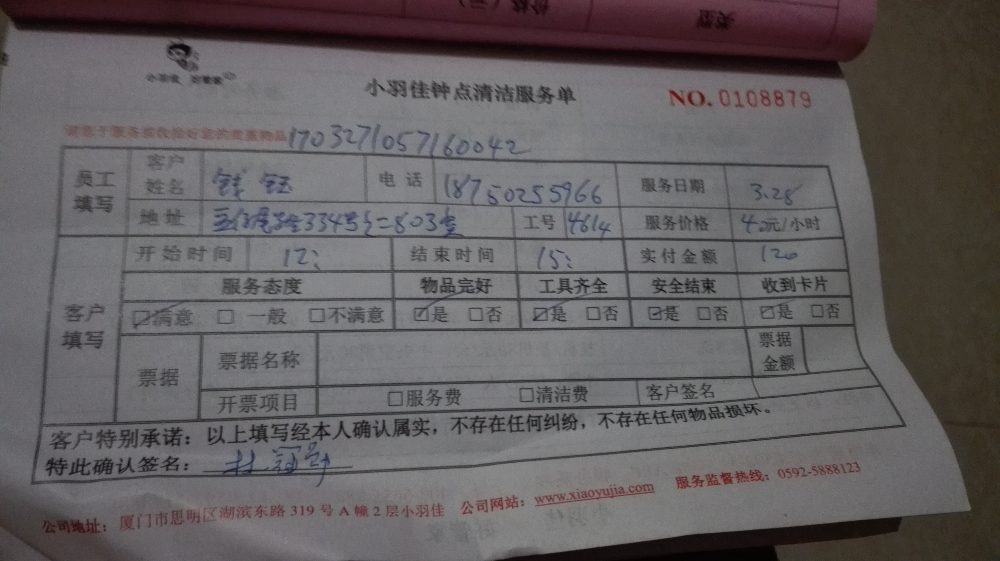 类型
价格（元）
小羽佳 好管家
小羽佳钟点清洁服务单
NO. 0108879
请您于服务前收捡好您的贵重物品 1703271057160042
员工填写 客户姓名 钱钰 电话 18750255966 服务日期 3.28
地址 334号 803室 工号 4614 服务价格 40元/小时
客户填写 开始时间 12: 结束时间 15: 实付金额 120
服务态度 物品完好 工具齐全 安全结束 收到卡片
☑满意 □一般 □不满意 ☑是 □否 ☑是 □否 ☑是 □否 ☑是 □否
票据 票据名称 票据金额
开票项目 □服务费 □清洁费 客户签名
客户特别承诺：以上填写经本人确认属实，不存在任何纠纷，不存在任何物品损坏。
特此确认签名：
公司地址：厦门市思明区湖滨东路 319 号 A 幢 2 层小羽佳 公司网站：www.xiaoyujia.com 服务监督热线：0592-5888123